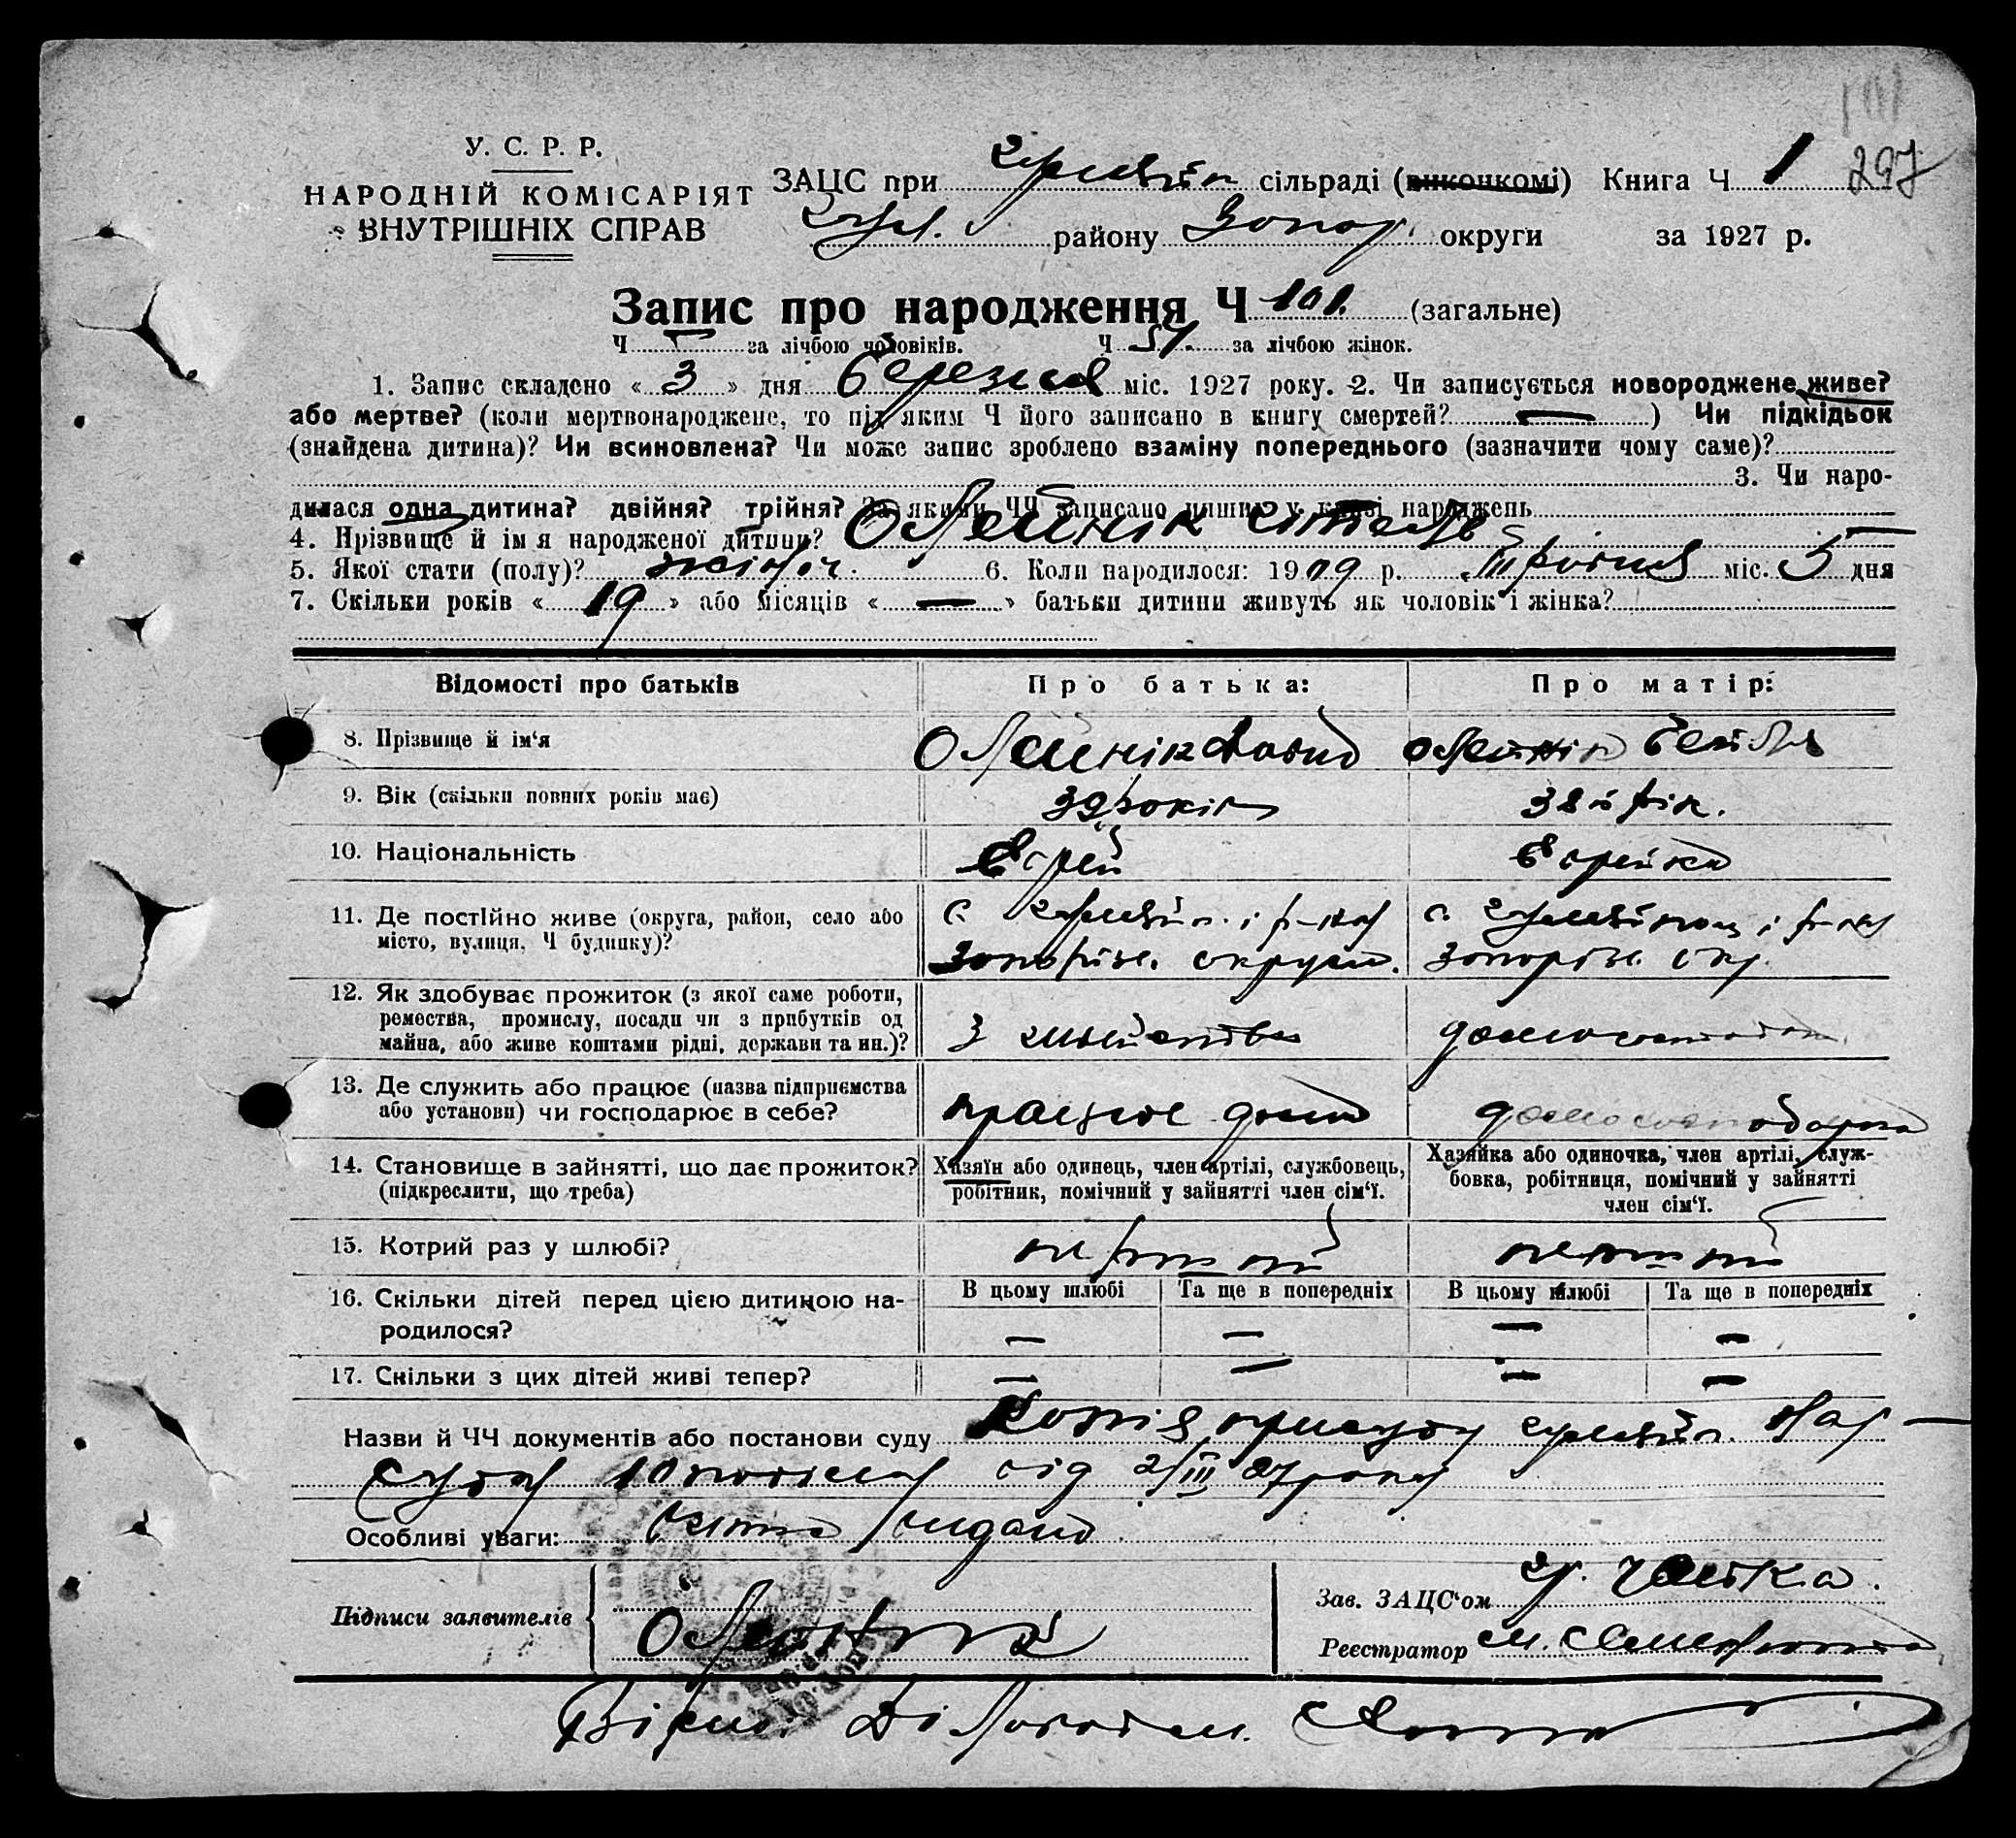 У. С. Р. Р.
НАРОДНІЙ КОМІСАРІЯТ
ВНУТРІШНІХ СПРАВ
ЗАЦС при сільраді (виконкомі) Книга Ч 1
297
району Запор. округи за 1927 р.
Запис про народження Ч 101. (загальне)
Ч — за лічбою чоловіків. Ч 51. за лічбою жінок.
1. Запис складено « 3 » дня березня міс. 1927 року. 2. Чи записується новороджене живе?
або мертве? (коли мертвонароджене, то під яким Ч його записано в книгу смертей? — ) Чи підкідьок
(знайдена дитина)? Чи всиновлена? Чи може запис зроблено взаміну попереднього (зазначити чому саме)?
3. Чи наро-
дилася одна дитина? двійня? трійня? За якими ЧЧ записано инших у книзі народжень
4. Прізвище й ім я народженої дитини? Олейнік
5. Якої стати (полу)? жіноч. 6. Коли народилося: 1909 р. міс. 5 дня
7. Скільки років « 19 » або місяців « — » батьки дитини живуть як чоловік і жінка?
Відомості про батьків Про батька: Про матір:
8. Прізвище й ім‘я Олейнік Давид Олейнік Бейля
9. Вік (скільки повних років має) 39 років 38й рік.
10. Національність Єврей Єврейка
11. Де постійно живе (округа, район, село або
місто, вулиця, Ч будинку)? с. і р-ну с. і р-ну
Запоріж. округи. Запоріж. окр.
12. Як здобуває прожиток (з якої саме роботи,
ремества, промислу, посади чи з прибутків од
майна, або живе коштами рідні, держави та ин.)? З
13. Де служить або працює (назва підприємства
або установи) чи господарює в себе? працює дома домогосподарка
14. Становище в зайнятті, що дає прожиток?
(підкреслити, що треба)
Хазяїн або одинець, член артілі, службовець,
робітник, помічний у зайнятті член сім‘ї.
Хазяйка або одиночка, член артілі, служ-
бовка, робітниця, помічний у зайнятті
член сім‘ї.
15. Котрий раз у шлюбі? перший перший
16. Скільки дітей перед цією дитиною на-
родилося?
В цьому шлюбі Та ще в попередніх В цьому шлюбі Та ще в попередніх
— — — —
17. Скільки з цих дітей живі тепер? — — — —
Назви й ЧЧ документів або постанови суду Копія присуду Нар —
суду від 2/III 27 року
Особливі уваги:
Підписи заявителів Олейнік
Зав. ЗАЦС‘ом
Реєстратор
Вірно: Діловод